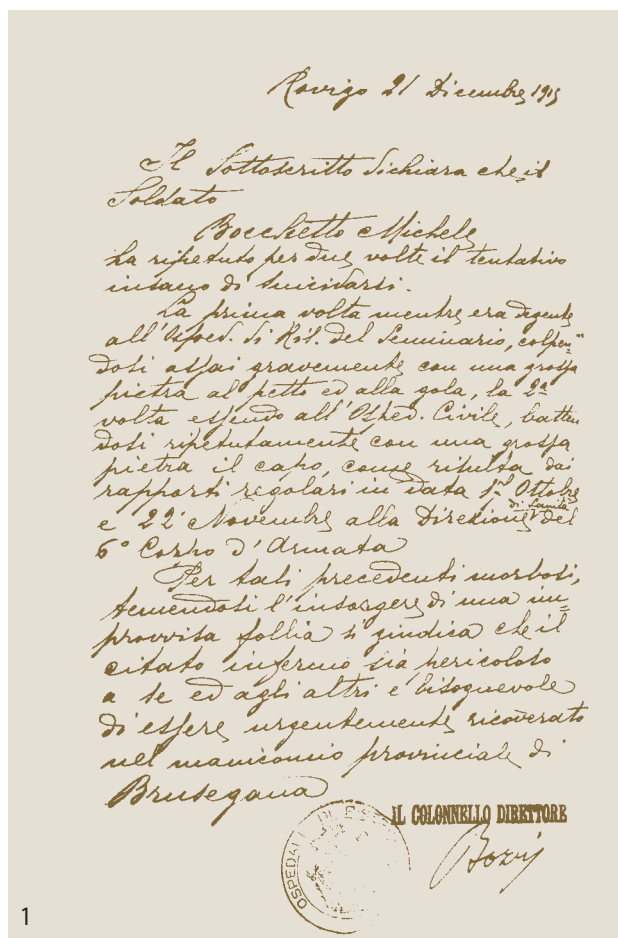 Rovigo 21 Dicembre 1915
Il Sottoscritto dichiara che il
Soldato
Bocchetto Michele
ha ripetuto per due volte il tentativo
insano di suicidarsi.
La prima volta mentre era degente
all'Osped. di Ris. del Seminario, colpen=
dosi assai gravemente con una grossa
pietra al petto ed alla gola, la 2ª
volta essendo all'Osped. Civile, batten
dosi ripetutamente con una grossa
pietra il capo, come risulta dai
rapporti regolari in data 1º Ottobre
e 22 Novembre alla Direzione di Sanità del
6º Corpo d'Armata
Per tali precedenti morbosi,
temendosi l'insorgere di una im=
provvisa follia si giudica che il
citato infermo sia pericoloso
a se ed agli altri e bisognevole
di essere urgentemente ricoverato
nel manicomio provinciale di
Brusegana
IL COLONNELLO DIRETTORE
OSPEDALE DI
1